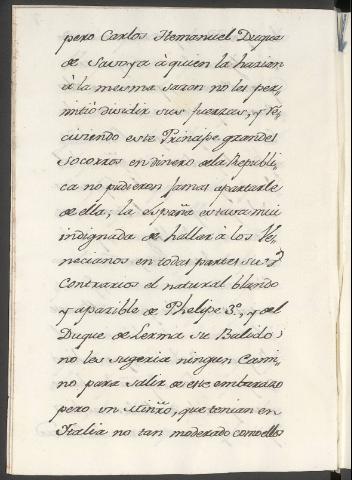 pero Carlos Hemanuel Duque
de Savoya à quien la hazian
à la mesma sazon no les per-
mitiò dividir sus fuerzas, y re-
civiendo este Principe grandes
socorros en dinero de la Republi-
ca no pudieron jamas apartarle
de ella; la españa estava mui
indignada de hallar à los Ve-
necianos en todas partes sus
Contrarios el natural blando
y apazible de Phelipe 3º, y del
Duque de Lerma su Balido,
no les sugeria ningun Cami-
no para salir de este embarazo
pero un Minro, que tenian en
Italia no tan moderado como ellos